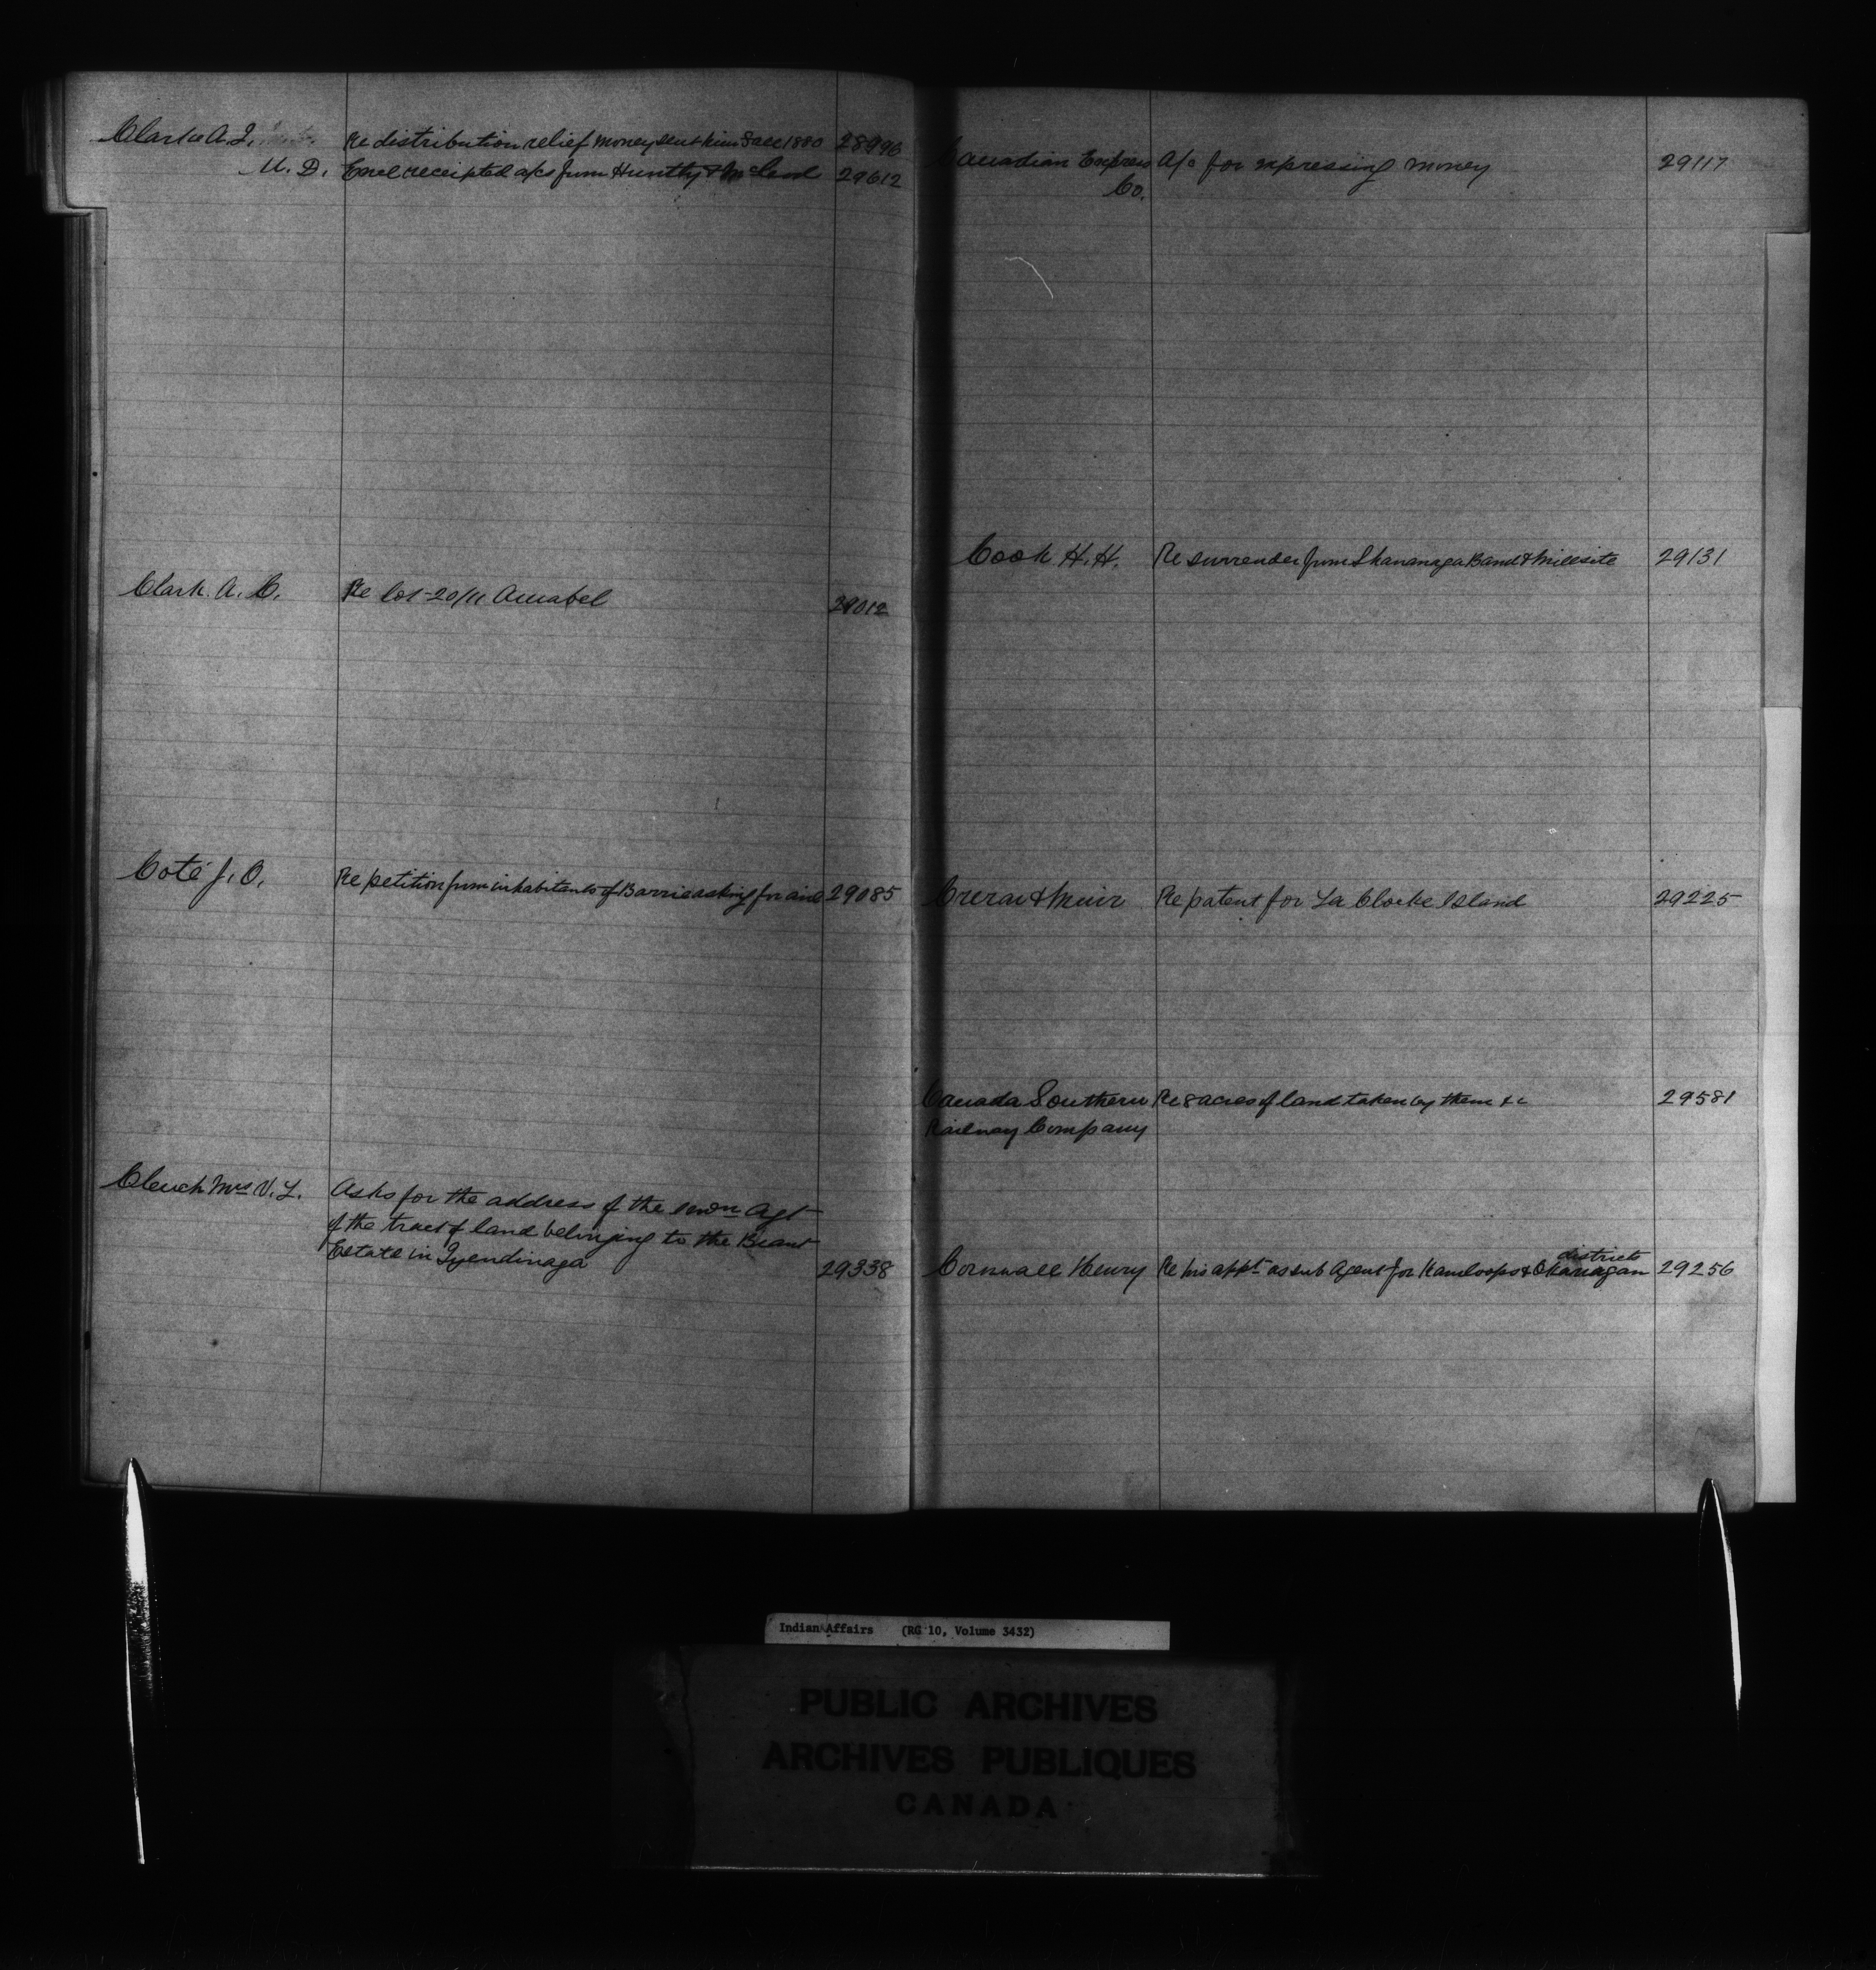 Clarke A. J. Re distribution relief money sent him Fall 1880 28996
M. D. Encl receipted a/cs from Huntly & McLeod 29612
Clark. A. C. Re lot 20/11 Amabel 29012
Coté J. O. Re petition from inhabitants of Barrie asking for aid 29085
Clench Mrs V. L. Asks for the address of the Agt
of the tract of land belonging to the Brant
Estate in Tyendinaga 29338
Canadian Express A/c for expressing money 29117
Co.
Cook H. H. Re surrender from Shawanaga Band & Millsite 29131
Crerar & Muir Re patent for La Cloche Island 29225
Canada Southern Re 8 acres of land taken by them &c 29581
Railway Company
districts
Cornwall Henry Re his appt as sub Agent for Kamloops & Okanagan 29256
Indian Affairs (RG 10, Volume 3432)
PUBLIC ARCHIVES
ARCHIVES PUBLIQUES
CANADA